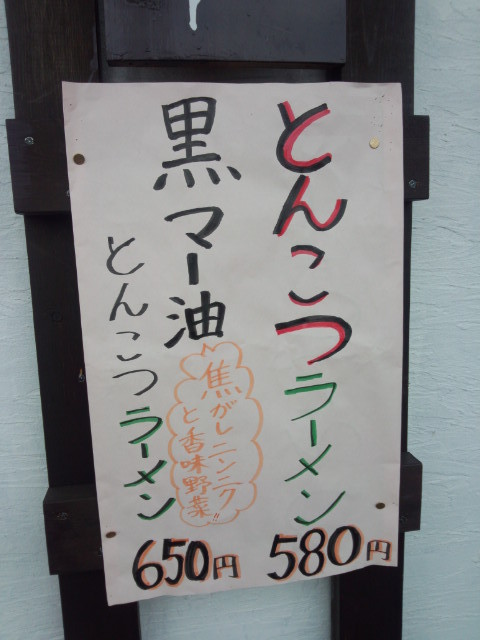 とんこつラーメン
580円
黒マー油
焦がしニンニク
と香味野菜!!
とんこつラーメン
650円